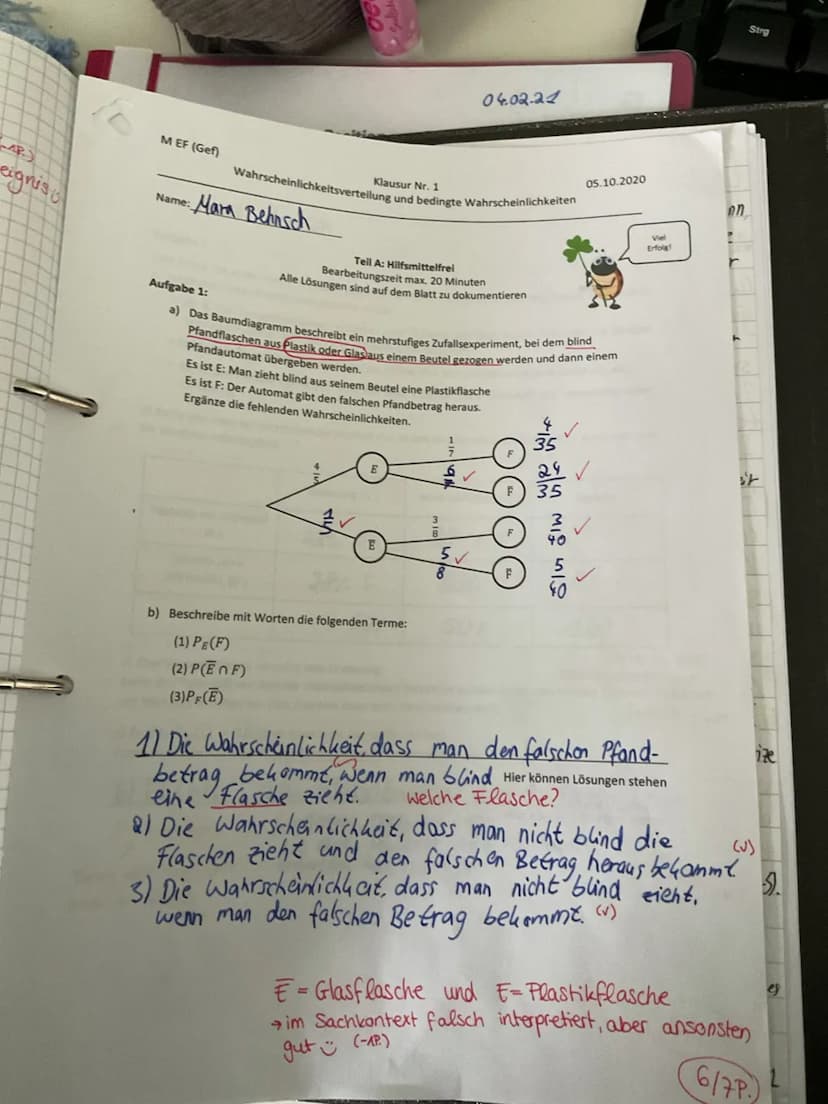 04.02.21
M EF (Gef)
Klausur Nr. 1
05.10.2020
Wahrscheinlichkeitsverteilung und bedingte Wahrscheinlichkeiten
Name: Mara Behnsch
Viel
Erfolg!
Teil A: Hilfsmittelfrei
Bearbeitungszeit max. 20 Minuten
Alle Lösungen sind auf dem Blatt zu dokumentieren
Aufgabe 1:
a) Das Baumdiagramm beschreibt ein mehrstufiges Zufallsexperiment, bei dem blind
Pfandflaschen aus Plastik oder Glas aus einem Beutel gezogen werden und dann einem
Pfandautomat übergeben werden.
Es ist E: Man zieht blind aus seinem Beutel eine Plastikflasche
Es ist F: Der Automat gibt den falschen Pfandbetrag heraus.
Ergänze die fehlenden Wahrscheinlichkeiten.
4/5 E 1/7 F 4/35 ✓
6/7 ✓ F̅ 24/35 ✓
1/5 ✓ E̅ 3/8 F 3/40 ✓
5/8 ✓ F̅ 5/40 ✓
b) Beschreibe mit Worten die folgenden Terme:
(1) P_E(F)
(2) P(E̅ ∩ F)
(3) P_F(E̅)
1) Die Wahrscheinlichkeit, dass man den falschen Pfand-
betrag bekommt, wenn man blind Hier können Lösungen stehen
eine Flasche zieht. welche Flasche?
2) Die Wahrscheinlichkeit, dass man nicht blind die
Flaschen zieht und den falschen Betrag heraus bekommt. (✓)
3) Die Wahrscheinlichkeit, dass man nicht blind zieht,
wenn man den falschen Betrag bekommt. (✓)
E̅ = Glasflasche und E = Plastikflasche
→ im Sachkontext falsch interpretiert, aber ansonsten
gut ☺ (-1P.)
6/7P.
(-1P.)
eignis
Strg